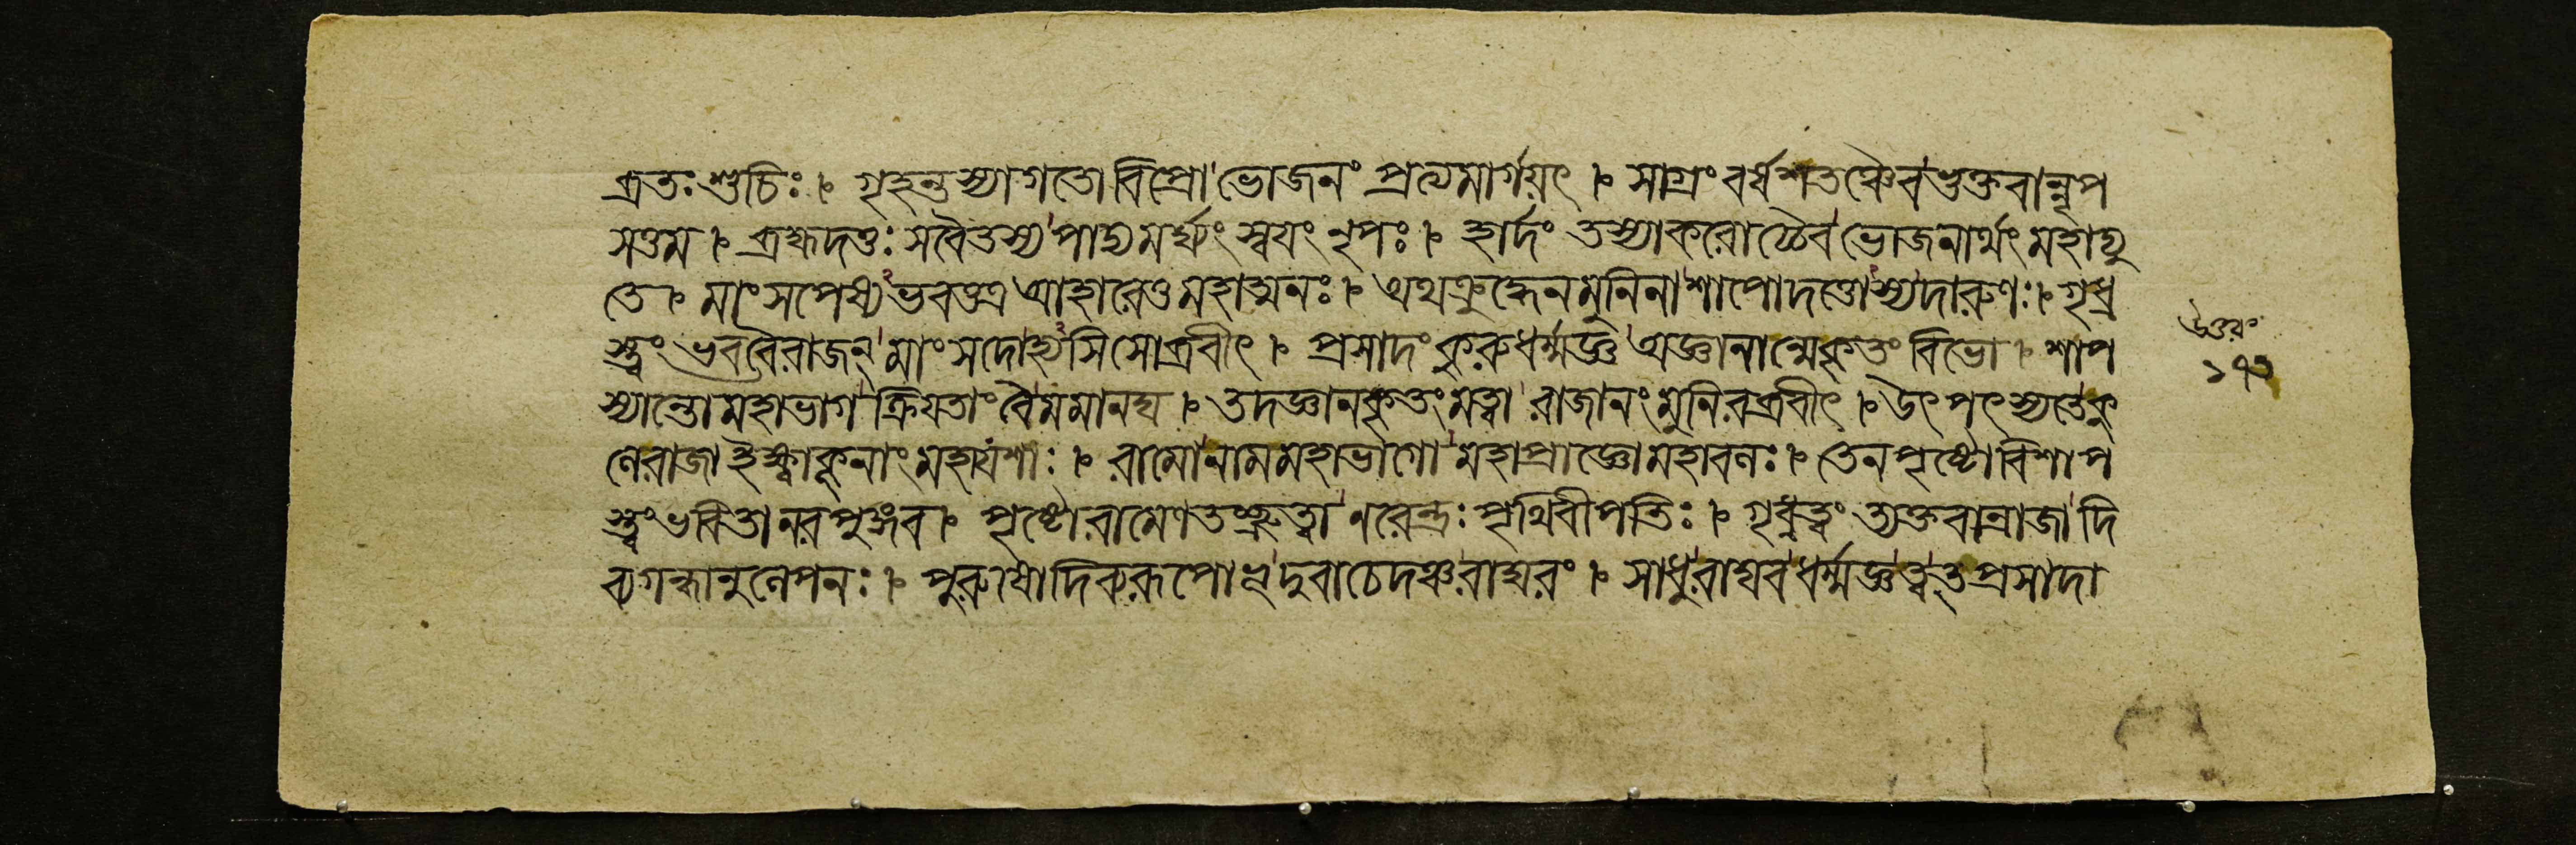 ব্রতঃ শুচিঃ । গৃহন্তস্যাগতো বিপ্রো ভোজনং প্রত্যমার্গয়ৎ । সাগ্রং বর্ষশতঞ্চৈব ভুক্তবান্নৃপ
সত্তম । ব্রহ্মদত্তঃ স বৈ তস্য পাদ্যমর্ঘ্যং স্বয়ং নৃপঃ । হার্দং তস্যাকরোচ্চৈব ভোজনার্থং মহাদ্যু
তে । মাংসমস্য ভবত্তত্র আহারে তু মহাত্মনঃ । অথ ক্রুদ্ধেন মুনিনা শাপো দত্তোস্য দারুণঃ । গৃধ্র
স্ত্বং ভব বৈ রাজন্ মাংসদো হ্যসি সোব্রবীৎ । প্রসাদং কুরু ধর্ম্মজ্ঞ অজ্ঞানান্মে কৃতং বিভো । শাপ
স্যান্তো মহাভাগ ক্রিয়তাং বৈ মমানঘ । তদজ্ঞানকৃতং মত্বা রাজানং মুনিরব্রবীৎ । উৎপৎস্যতে কু
লে রাজা ইক্ষ্বাকূনাং মহাযশাঃ । রামো নাম মহাভাগো মহাপ্রাজ্ঞো মহাবলঃ । তেন পৃষ্টো বিশাপ
স্ত্বং ভবিতা নরপুঙ্গব । পৃষ্টো রামেণ তৎশ্রুত্বা নরেন্দ্রঃ পৃথিবীপতিঃ । গৃধ্রত্বং ত্যক্তবান্রাজা দি
ব্যগন্ধানুলেপনঃ । পুরুষো দিব্যরূপোভূদুবাচেদঞ্চ রাঘবং । সাধু রাঘব ধর্ম্মজ্ঞ ত্বৎপ্রসাদা
উত্তর
১৭৩